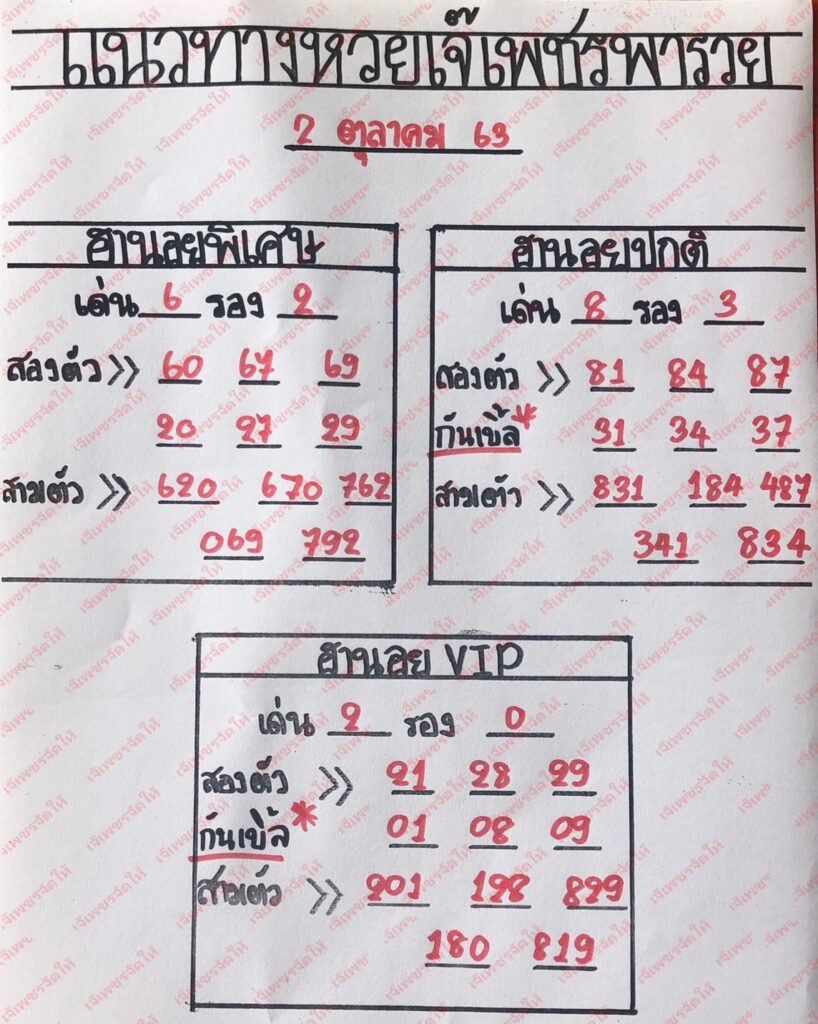 แนวทางหวยเจ๊เพชรพารวย
2 ตุลาคม 63
ฮานอยพิเศษ
เด่น 6 รอง 2
สองตัว >> 60 67 69
20 27 29
สามตัว >> 620 670 762
069 792
ฮานอยปกติ
เด่น 8 รอง 3
สองตัว >> 81 84 87
กันเบิ้ล* 31 34 37
สามตัว >> 831 184 487
341 834
ฮานอย VIP
เด่น 2 รอง 0
สองตัว >> 21 28 29
กันเบิ้ล* 01 08 09
สามตัว >> 201 128 829
180 819
เจ๊เพชรจัดให้